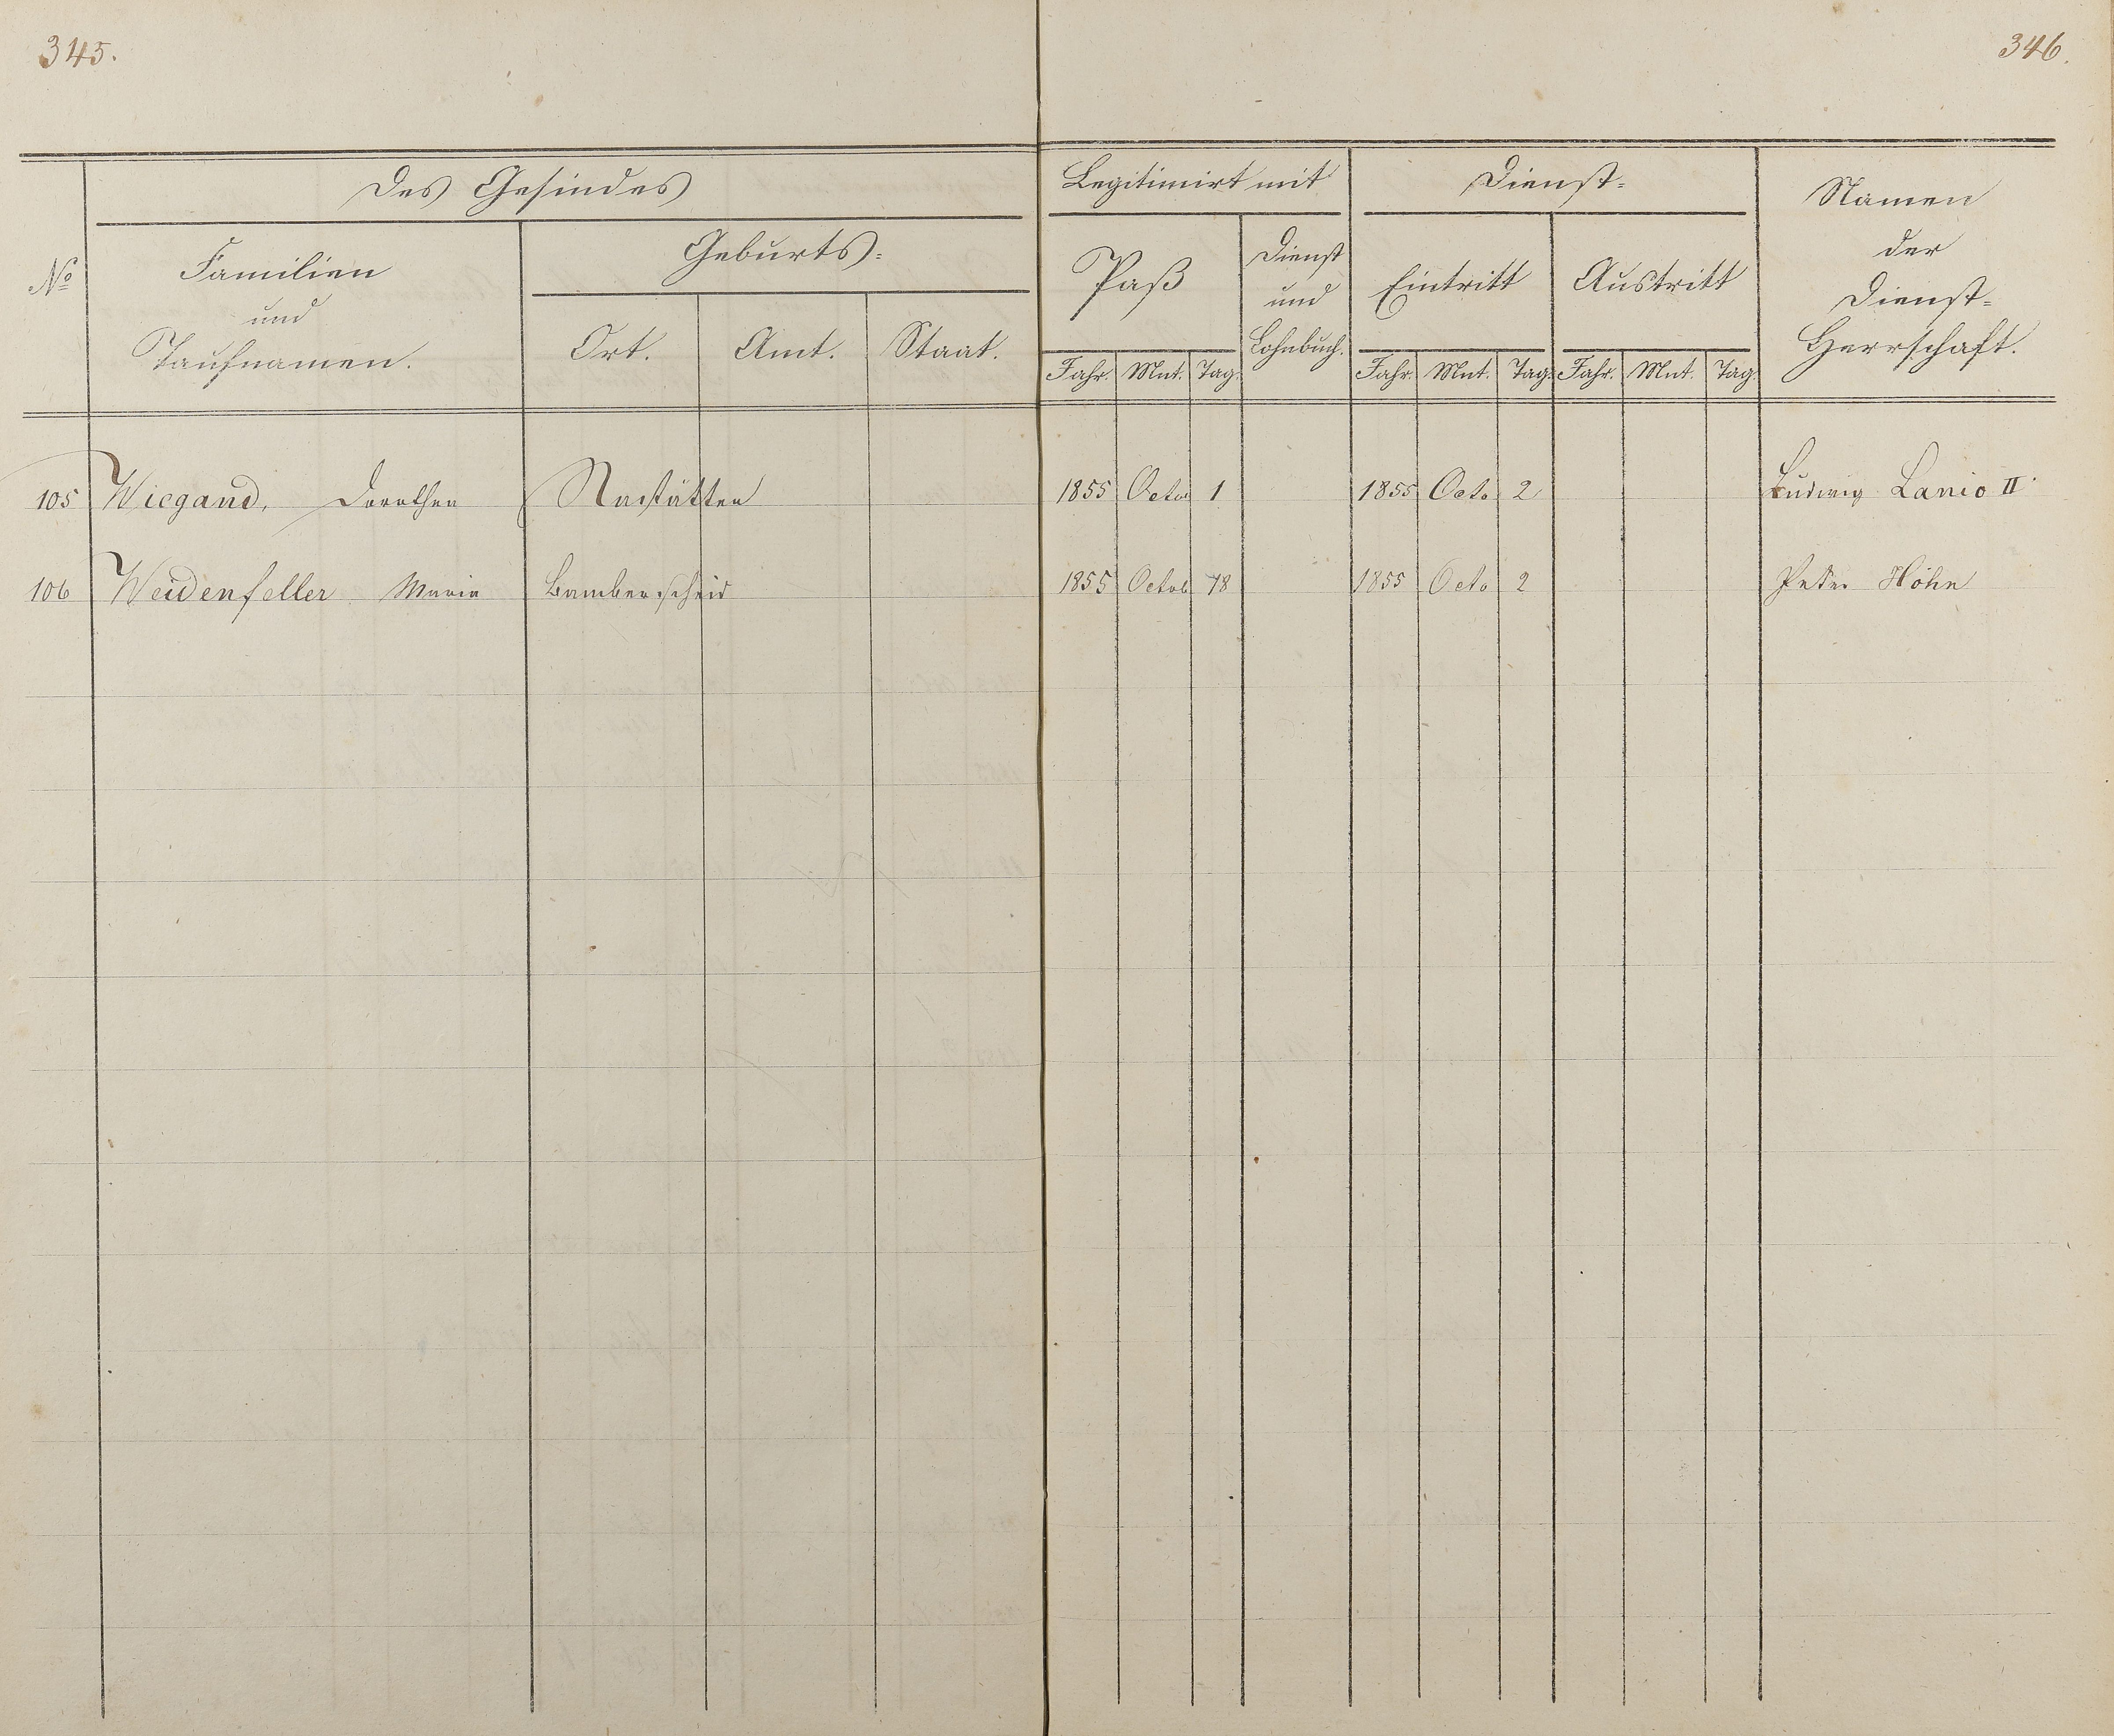 345.
346.
Des Gesindes
Legitimirt mit
Dienst-
Namen
der
Dienst-
Herrschaft.
No
Familien
und
Taufnamen.
Geburts-
Ort. Amt. Staat.
Paß
Dienst
und
Lohnbuch.
Eintritt
Austritt
Jahr. Mnt. Tag.
Jahr. Mnt. Tag. Jahr. Mnt. Tag.
105 Wiegand, Dorothea Nastätten 1855 Octo 1 1855 Octo 2 Ludwig Lanio II.
106 Weidenfeller Maria Bamberscheid 1855 Octob 18 1855 Octo 2 Peter Höhn